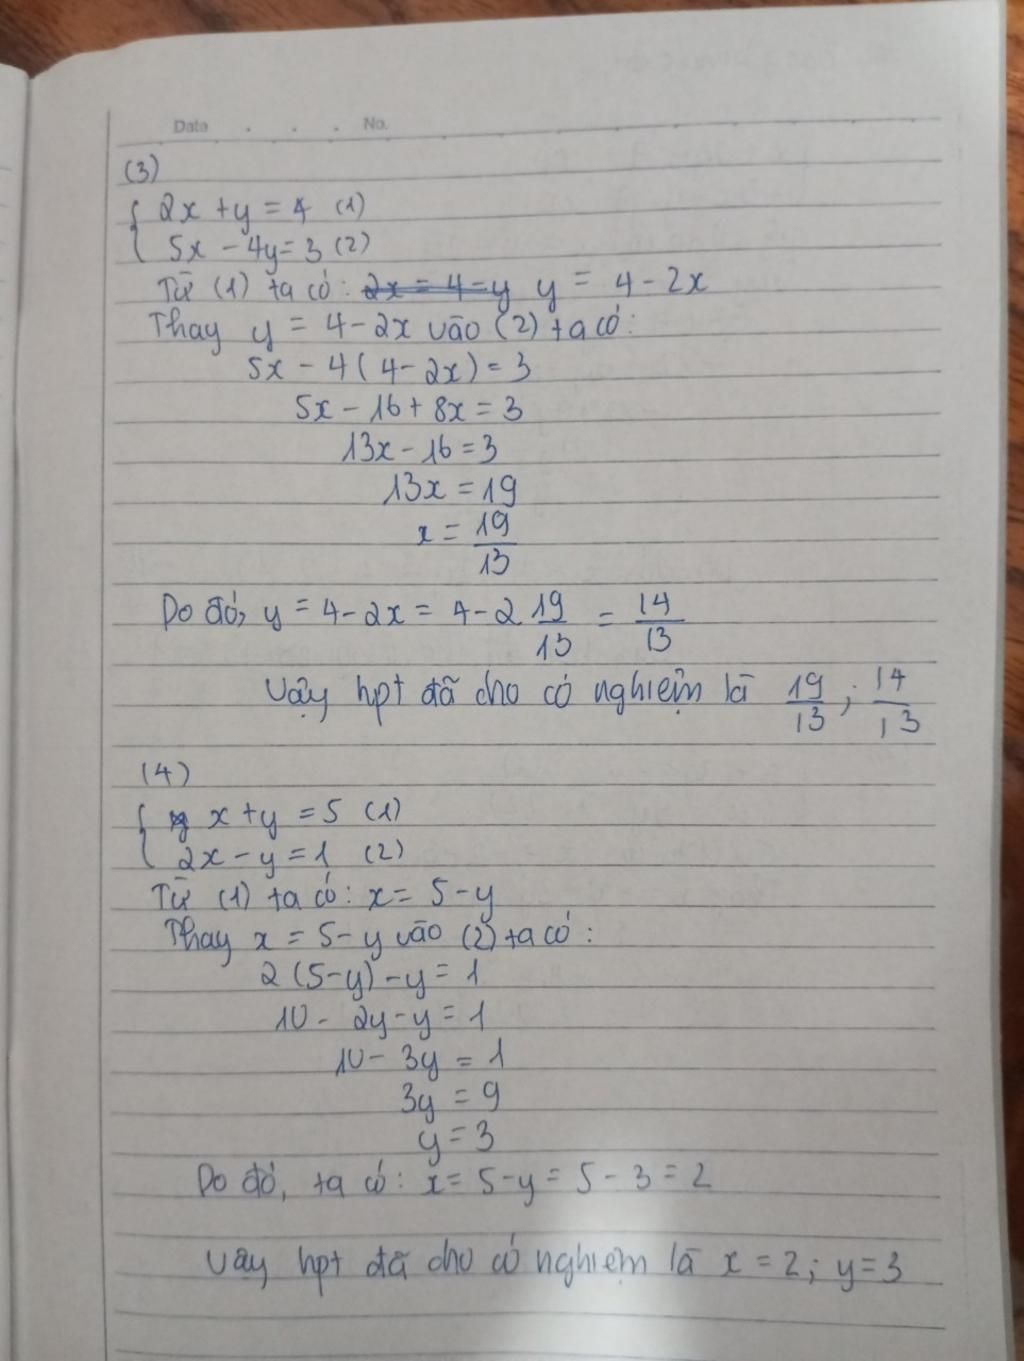 Date . . . No.
(3)
{ 2x + y = 4 (1)
5x - 4y = 3 (2)
Từ (1) ta có: 2x = 4 - y y = 4 - 2x
Thay y = 4 - 2x vào (2) ta có:
5x - 4(4 - 2x) = 3
5x - 16 + 8x = 3
13x - 16 = 3
13x = 19
x = 19/13
Do đó, y = 4 - 2x = 4 - 2 19/13 = 14/13
Vậy hpt đã cho có nghiệm là 19/13 ; 14/13
(4)
{ x + y = 5 (1)
2x - y = 1 (2)
Từ (1) ta có: x = 5 - y
Thay x = 5 - y vào (2) ta có:
2(5 - y) - y = 1
10 - 2y - y = 1
10 - 3y = 1
3y = 9
y = 3
Do đó, ta có: x = 5 - y = 5 - 3 = 2
Vậy hpt đã cho có nghiệm là x = 2; y = 3